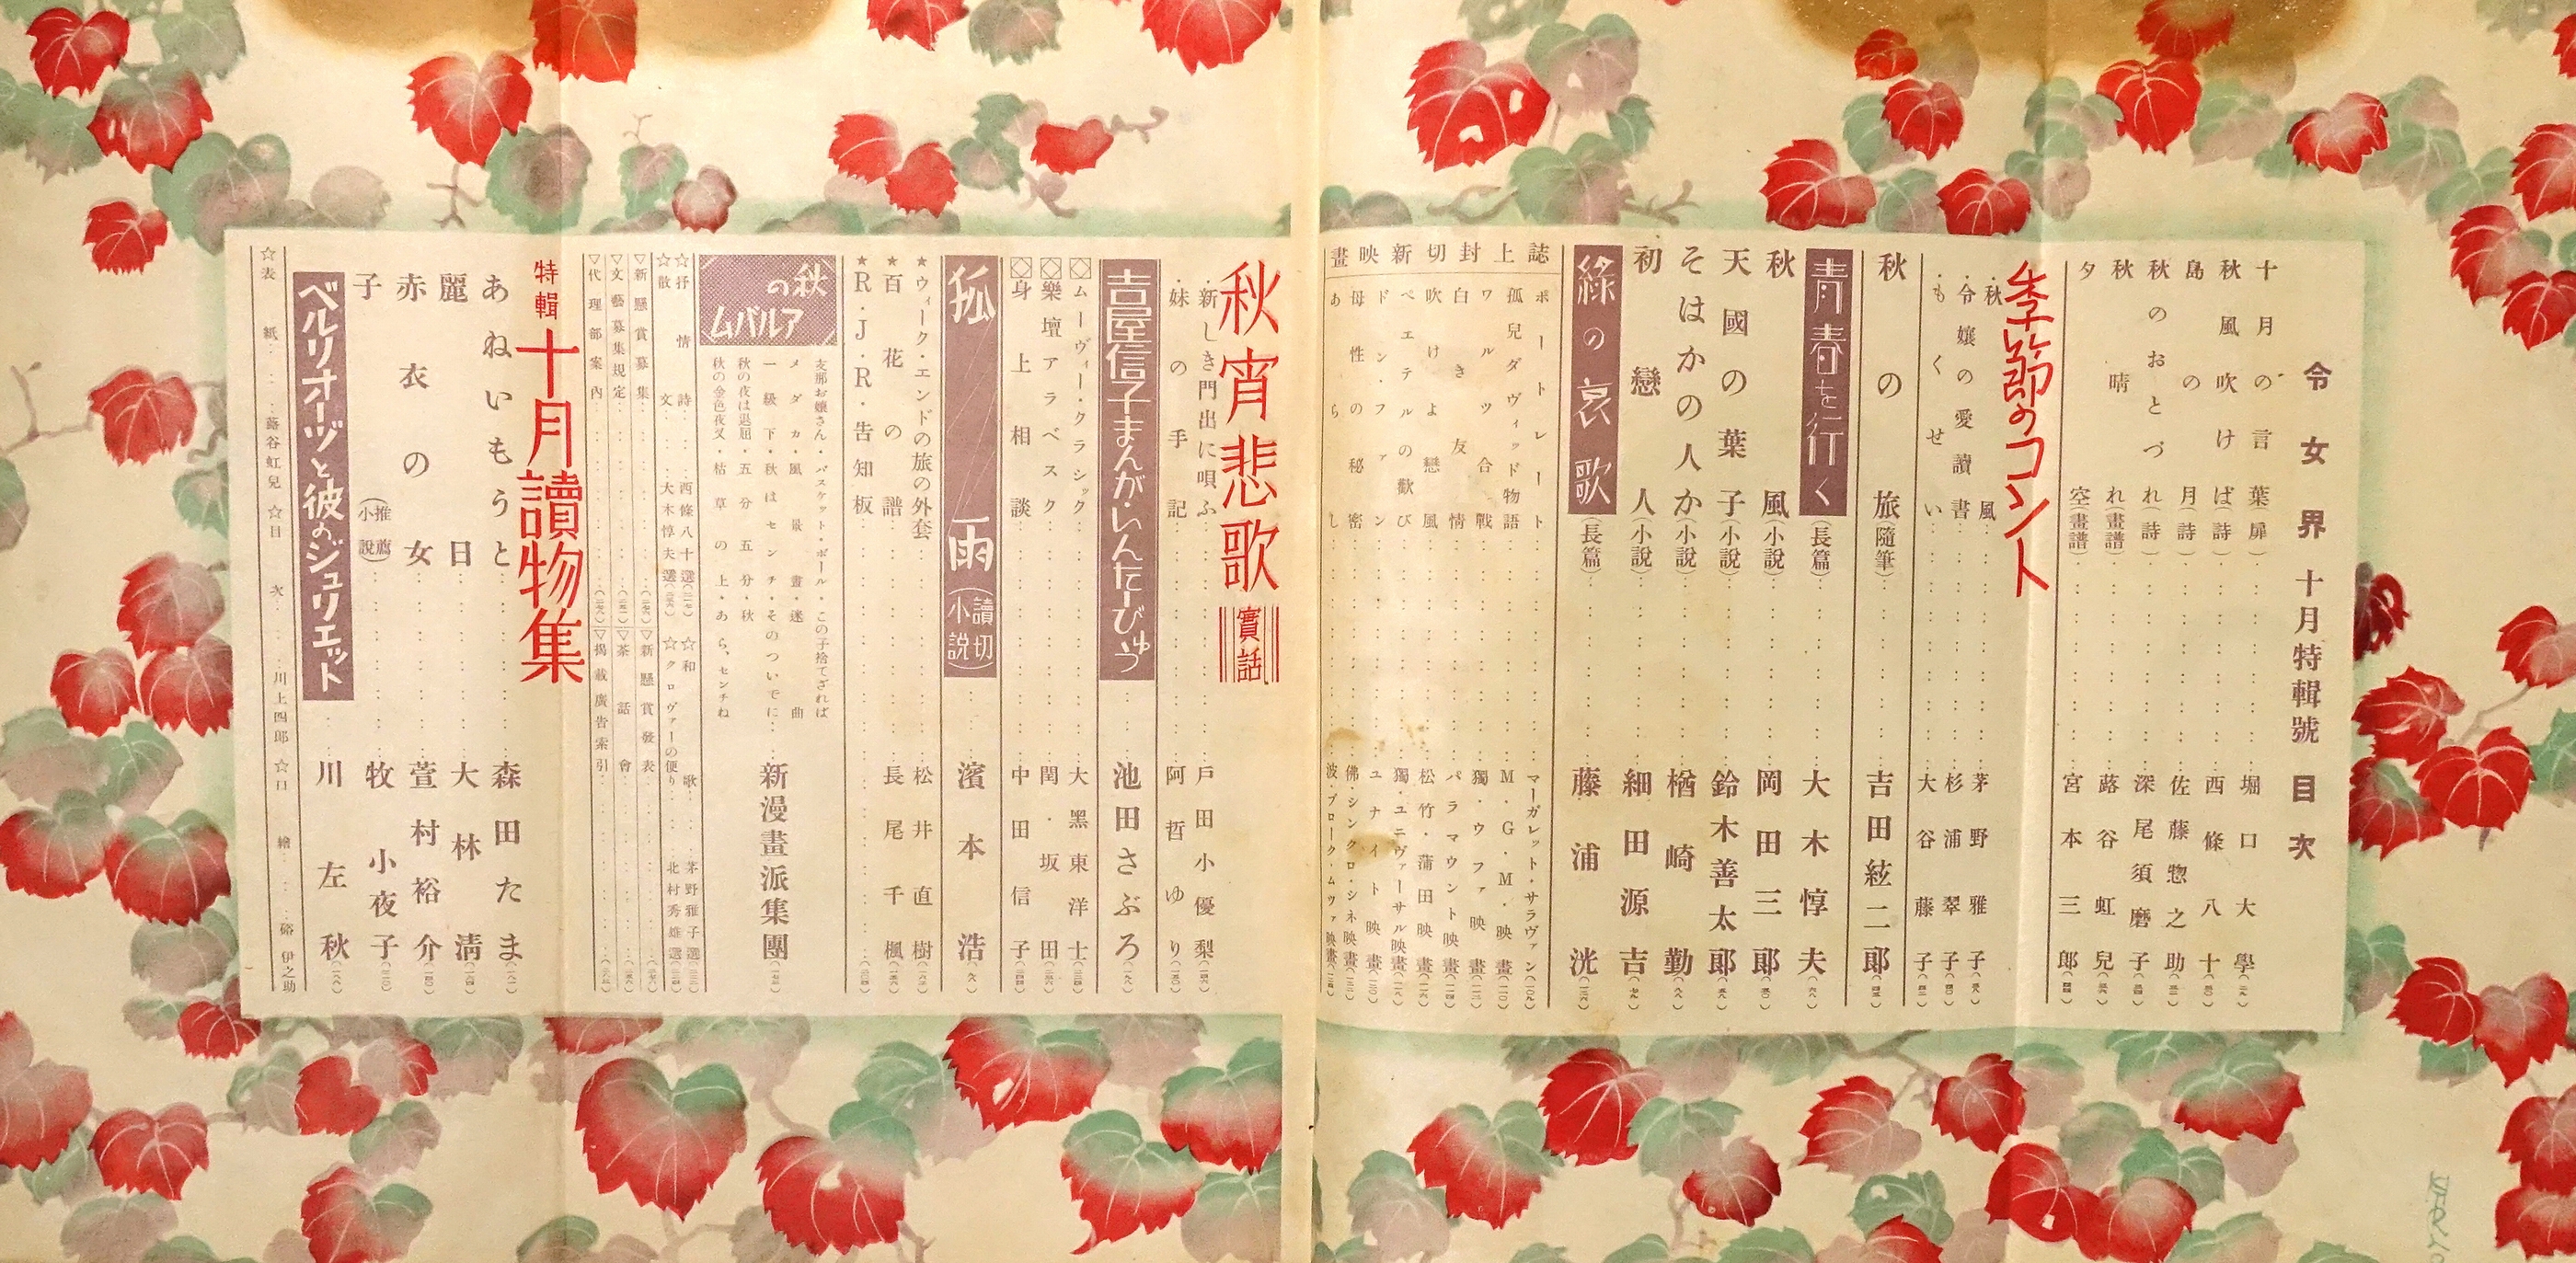 令女界 十月特輯號 目次
十月の言葉(扉)……堀口大學
秋風吹けば(詩)……西條八十
島の月(詩)……佐藤惣之助
秋のおとづれ(詩)……深尾須磨子
秋晴れ(畫譜)……蕗谷虹兒
夕空(畫譜)……宮本三郎
季節のコント
秋風……茅野雅子
令嬢の愛讀書……杉浦翠子
もくせい……大谷藤子
秋の旅(隨筆)……吉田絃二郎
青春を行く(長篇)……大木惇夫
秋風(小説)……岡田三郎
天國の葉子(小説)……鈴木善太郎
そはかの人か(小説)……楢崎勤
初戀人(小説)……細田源吉
綠の哀歌(長篇)……藤浦洸
誌上封切新映畫
ポートレート……マーガレット・サラヴァン
孤兒ダヴィッド物語……M・G・M・映畫
ワルツ合戰……獨・ウファ・映畫
白き友情……パラマウント映畫
吹けよ戀風……松竹・蒲田映畫
ペエテルの歡び……獨・ユニヴァーサル映畫
ドン・ファン……ユナイト映畫
母性の秘密……佛・シンクロ・シネ映畫
あらし……波・ブローク・ムツァ映畫
秋宵悲歌 實話
新しき門出に唄ふ……戸田小優梨
妹の手記……阿哲ゆり
吉屋信子まんが・いんたーびゆう……池田さぶろ
ムーヴィ・クラシック……大黑東洋士
樂壇アラベスク……閏・坂田
身上相談……中田信子
狐雨(讀切小説)……濱本浩
★ウィーク・エンドの旅の外套……松井直樹
★百花の譜……長尾千楓
★R・J・R・告知板
秋のアルバム
支那お嬢さん・バスケット・ボール・この子捨てざれば
メダカ・風最畫・迷曲
一級下・秋はセンチ・そのついでに
秋の夜は退屈・五分五分・秋
秋の金色夜叉・枯草の上・あら、センチね
新漫畫派集團
☆抒情詩……西條八十選
☆和歌……茅野雅子選
☆散文……大木惇夫選
☆クロヴァーの便り……北村秀雄選
▽新懸賞募集
▽新懸賞發表
▽文藝募集規定
▽茶話會
▽代理部案内
▽揭載廣告索引
特輯 十月讀物集
あねいもうと……森田たま
麗日……大林清
赤衣の女……萱村裕介
子(推薦小説)……牧小夜子
ベルリオーヅと彼のジュリエット……川左秋
☆表紙……蕗谷虹兒
☆目次……川上四郎
☆口繪……硲伊之助